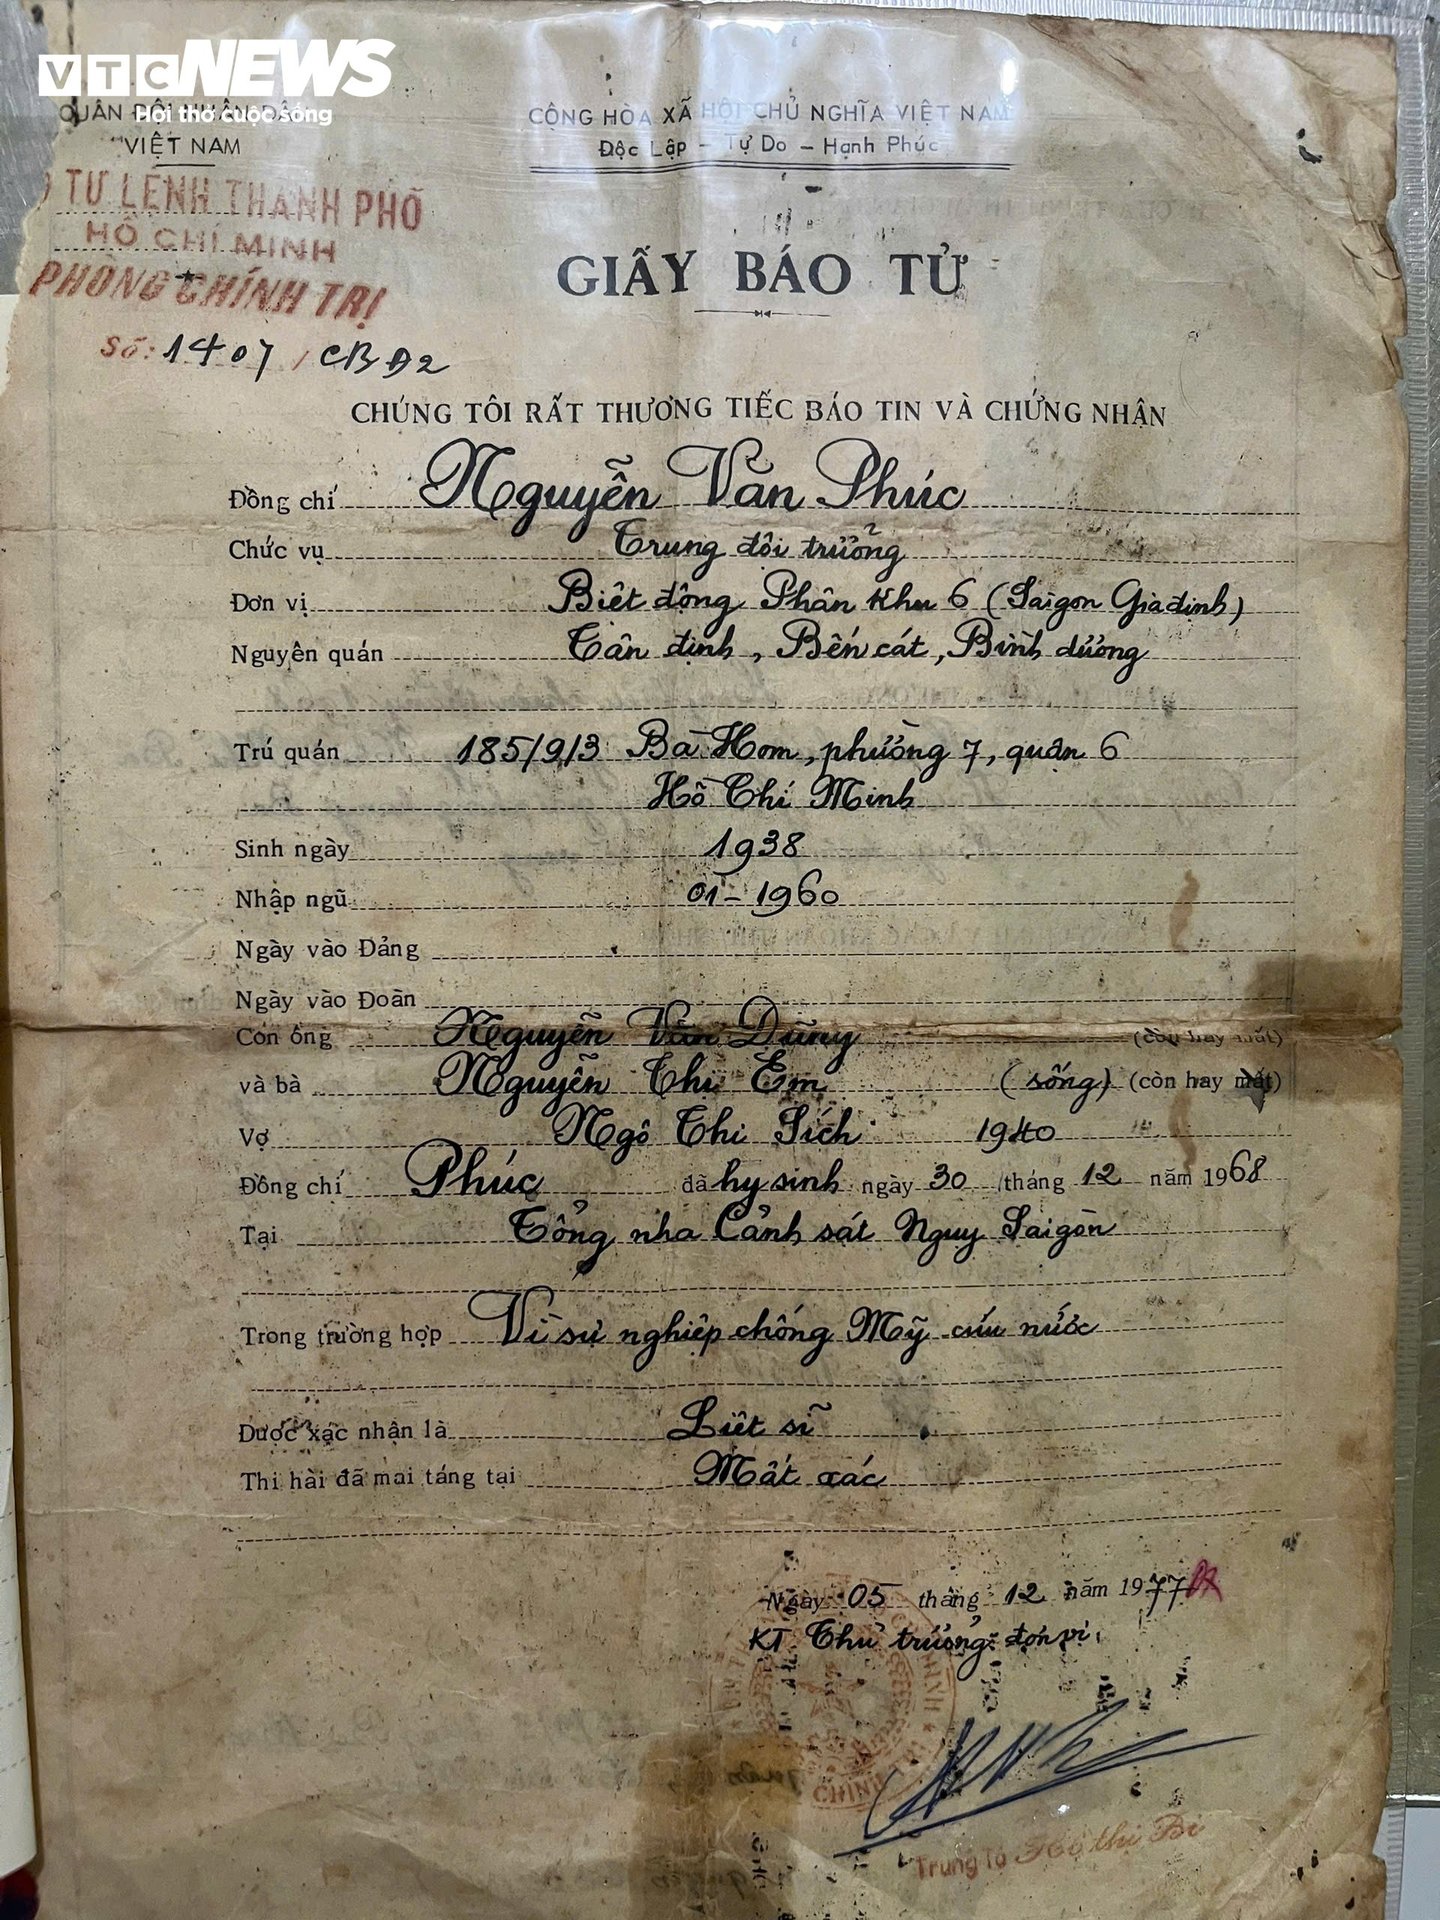 VTC NEWS
Hơi thở cuộc sống
QUÂN ĐỘI NHÂN DÂN
VIỆT NAM
CỘNG HÒA XÃ HỘI CHỦ NGHĨA VIỆT NAM
Độc Lập - Tự Do - Hạnh Phúc
TƯ LỆNH THÀNH PHỐ
HỒ CHÍ MINH
PHÒNG CHÍNH TRỊ
Số: 1407 / CBĐ2
GIẤY BÁO TỬ
CHÚNG TÔI RẤT THƯƠNG TIẾC BÁO TIN VÀ CHỨNG NHẬN
Đồng chí Nguyễn Văn Phúc
Chức vụ Trung đội trưởng
Đơn vị Biệt động Phân Khu 6 (Saigon Gia định)
Nguyên quán Tân định, Bến cát, Bình dương
Trú quán 185/9/3 Bà Hom, phường 7, quận 6
Hồ Chí Minh
Sinh ngày 1938
Nhập ngũ 01-1960
Ngày vào Đảng
Ngày vào Đoàn
Con ông Nguyễn Văn Dũng (còn hay mất)
và bà Nguyễn Thị Em (sống) (còn hay mất)
Vợ Ngô Thị Sích 1940
Đồng chí Phúc đã hy sinh ngày 30 tháng 12 năm 1968
Tại Tổng nha Cảnh sát Nguy Saigòn
Trong trường hợp Vì sự nghiệp chống Mỹ cứu nước
Được xác nhận là Liệt sĩ
Thi hài đã mai táng tại Mất xác
Ngày 05 tháng 12 năm 1977
KT Thủ trưởng đơn vị
Trung tá Hồ thị Bi